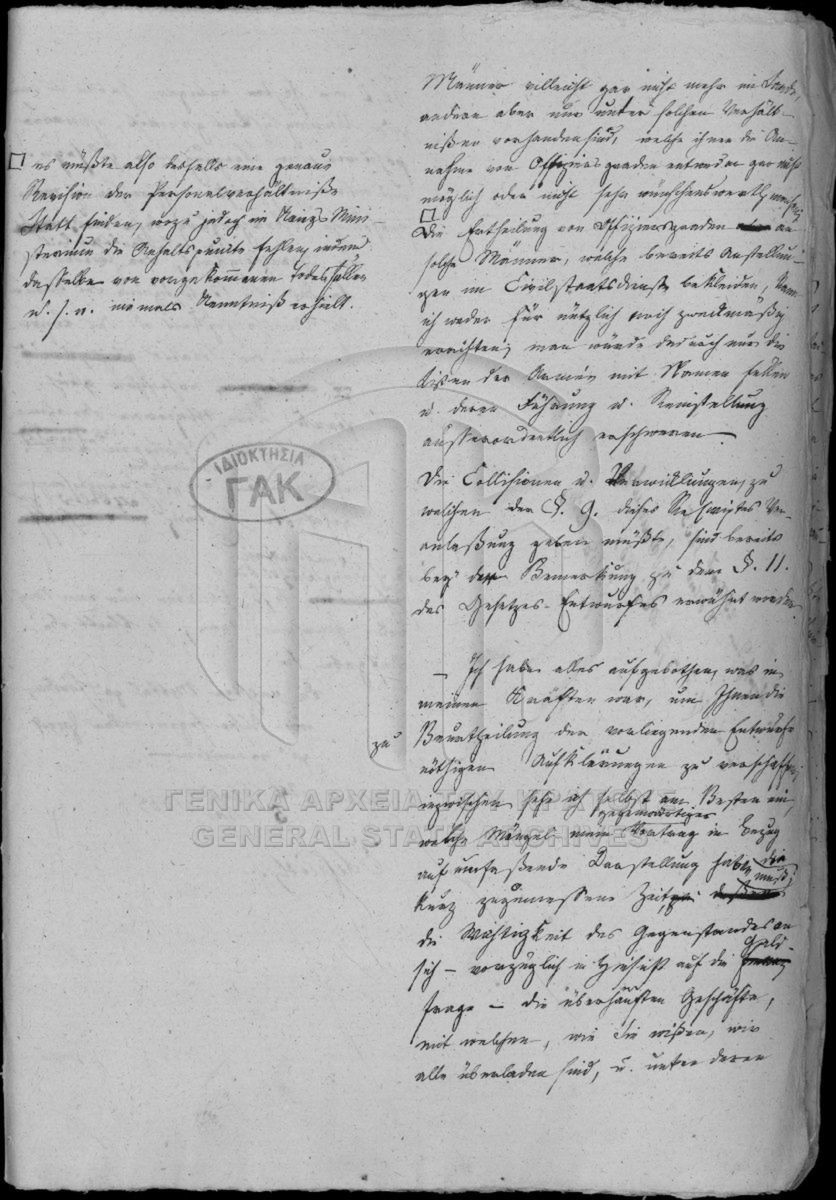 Männer vielleicht gar nicht mehr im Lande,
andere aber nur unter solchen Verhält-
nißen vorhanden sind, welche ihnen die An-
nahme von Offiziersgraden entweder gar nicht
möglich oder nicht sehr wünschenswerth machen
Die Ertheilung von Offiziersgraden an
solche Männer, welche bereits Anstellun-
gen im Civilstaatsdienste bekleiden, kann
ich weder für nützlich noch zweckmäßig
erachten; man würde dadurch nur die
Listen der Armée mit Namen füllen
u. deren Führung u. Reinstellung
ausserordentlich erschweren.
Die Collisionen u. Verwicklungen, zu
welchen der §. 9. dieses Reskriptes Ver-
anlaßung geben müßte, sind bereits
bey der Bemerkung zu dem §. 11.
des Gesetzes-Entwurfes erwähnt worden.
– Ich habe alles aufgebothen, was in
meinen Kräften war, um Ihnen die
zu Beurtheilung der vorliegenden Entwürfe
nöthigen Aufklärungen zu verschaffen;
inzwischen sehe ich selbst am Besten ein,
welche Mängel mein gegenwärtiger Vortrag in Bezug
auf umfaßende Darstellung haben muß; die
kurz zugemessene Zeit,
die Wichtigkeit des Gegenstandes an
sich – vorzüglich in Hinsicht auf die Geld-
frage – die überhäuften Geschäfte,
mit welchen, wie Sie wißen, wir
alle überladen sind, u. unter deren
es müßte also deßfalls eine genaue
Revision der Personalverhältniße
Statt finden, wozu jedoch im Kriegs-Mini-
sterium die Anhaltspunkte fehlen, indem
dasselbe von vorgekommenen Todesfällen
u. s. w. niemals Kenntniß erhielt.
ΙΔΙΟΚΤΗΣΙΑ
ΓΑΚ
ΓΕΝΙΚΑ ΑΡΧΕΙΑ ΤΟΥ ΚΡΑΤΟΥΣ
GENERAL STATE ARCHIVES